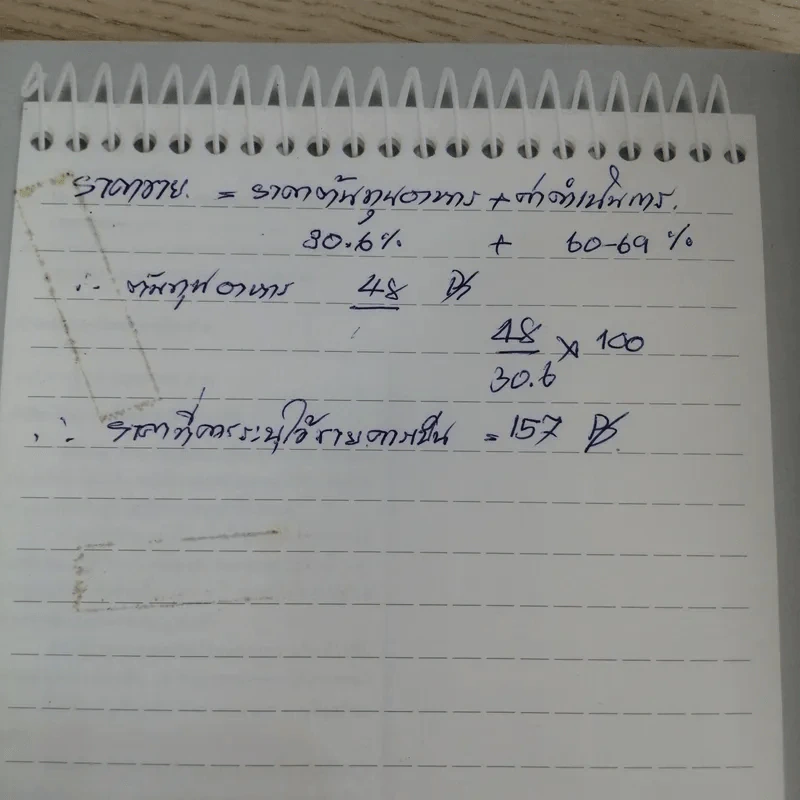 ราคาขาย. = ราคาต้นทุนอาหาร + ค่าดำเนินการ.
30.6% + 60-69 %
∴ ต้นทุนอาหาร 48 ฿
48 × 100
30.6
∴ ราคาที่ควรระบุไว้รายการเป็น = 157 ฿.